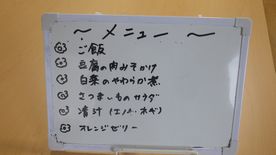 ～ メニュー ～
ご飯
豆腐の肉みそかけ
白菜のやわらか煮
さつまいものサラダ
清汁（エノキ、ネギ）
オレンジゼリー